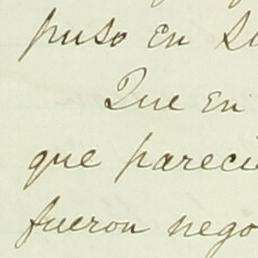 puso en su
Que en
que pareci
fueron nego